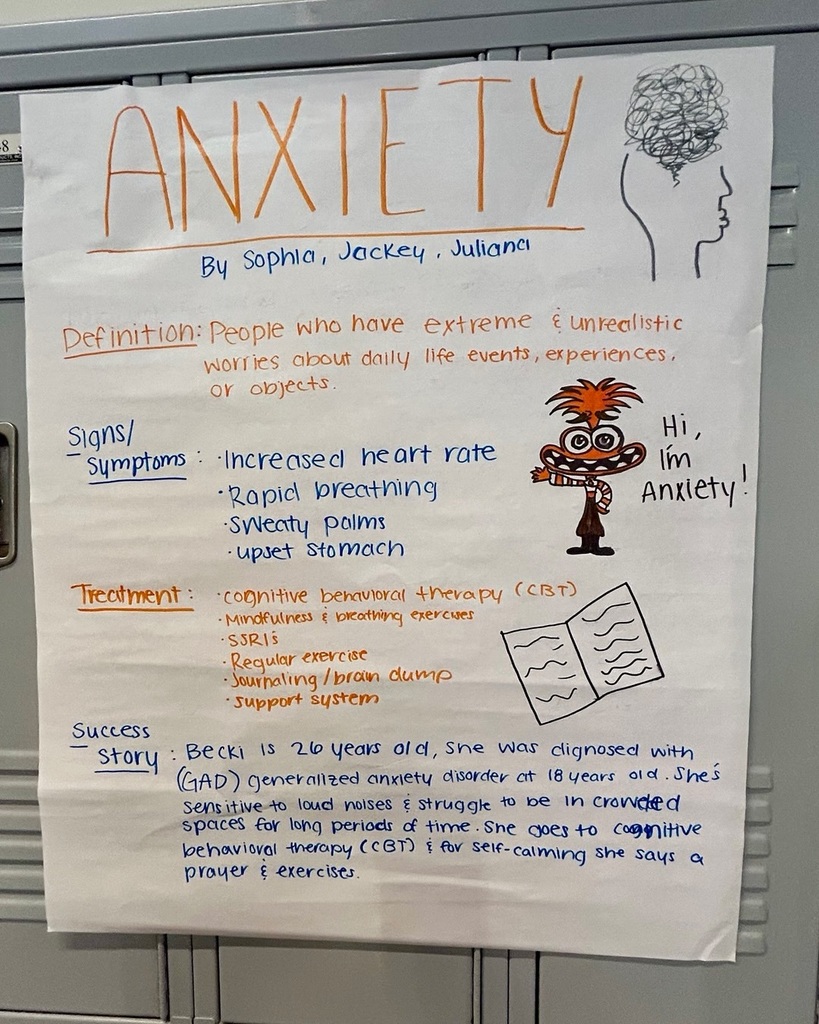 ANXIETY
By Sophia, Jackey, Juliana
Definition: People who have extreme & unrealistic
worries about daily life events, experiences,
or objects.
Signs/
Symptoms:
·Increased heart rate
·Rapid breathing
·Sweaty palms
·upset stomach
Hi,
I'm
Anxiety!
Treatment: ·cognitive behavioral therapy (CBT)
·Mindfulness & breathing exercises
·SSRI's
·Regular exercise
·Journaling/brain dump
·support system
Success
Story: Becki is 26 years old, she was dignosed with
(GAD) generalized anxiety disorder at 18 years old. She's
sensitive to loud noises & struggle to be in crowded
spaces for long periods of time. She goes to cognitive
behavioral therapy (CBT) & for self-calming she says a
prayer & exercises.